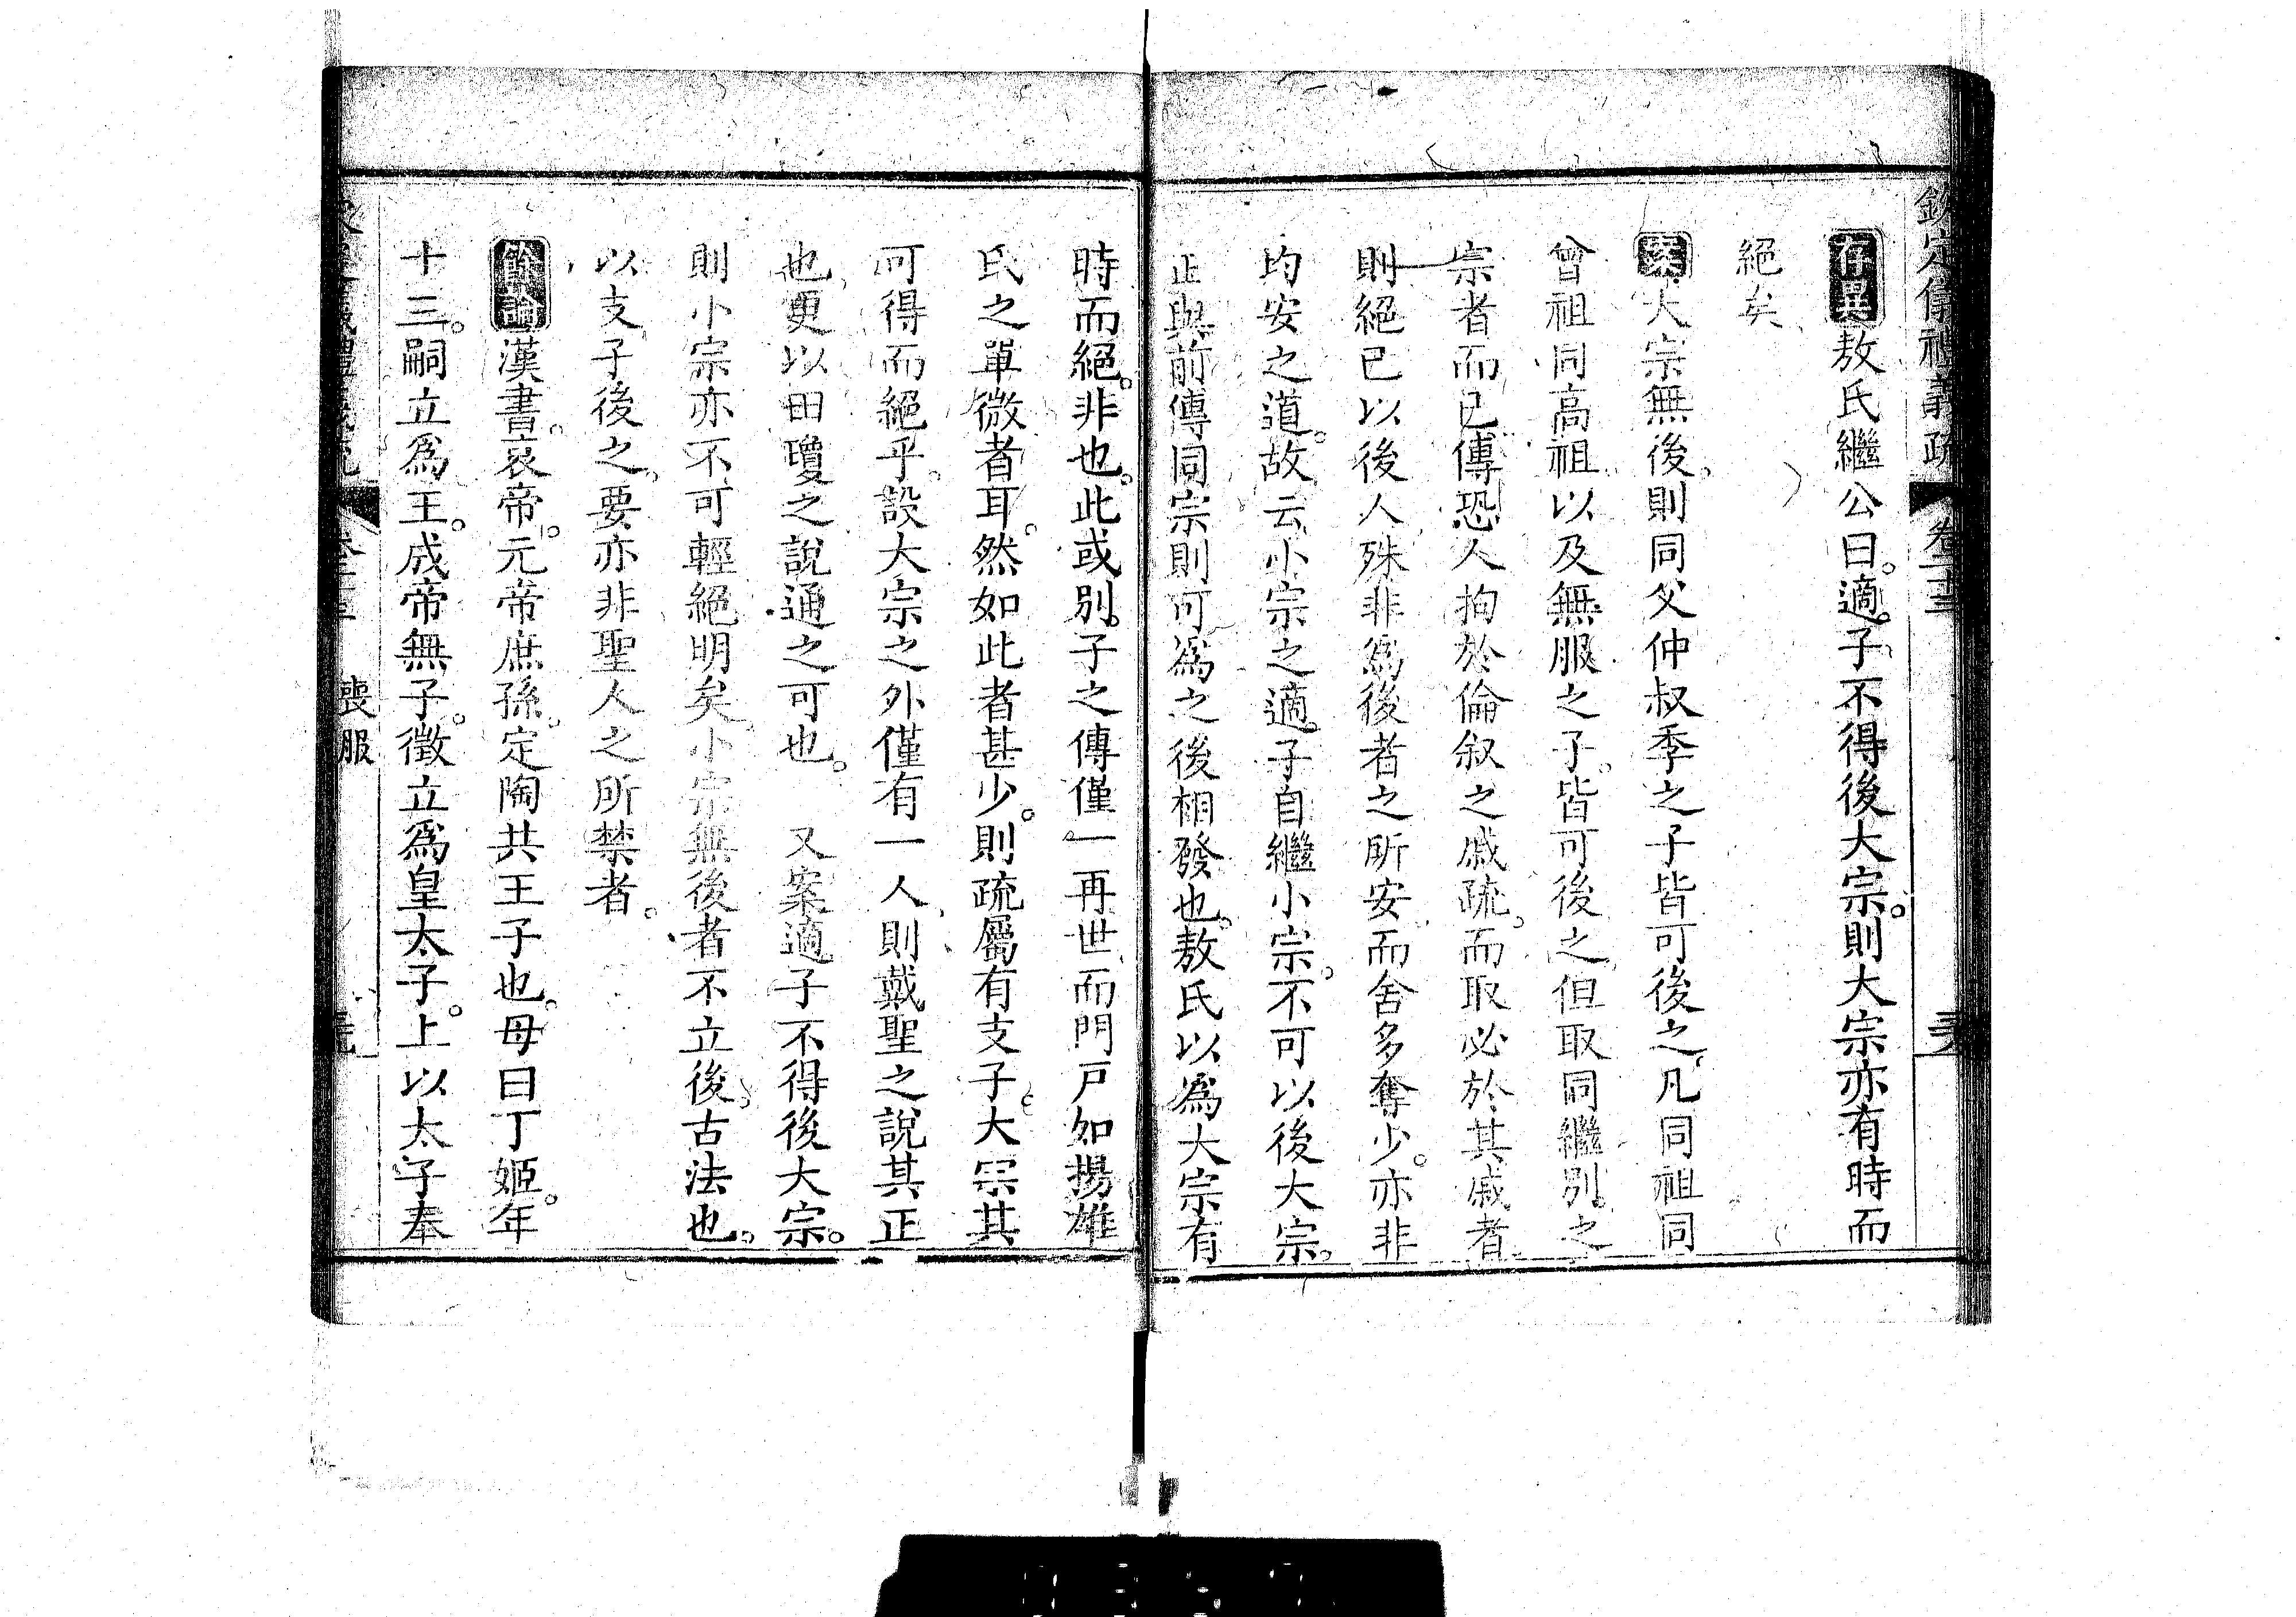 欽定儀禮義疏 卷二十三
存異敖氏繼公曰適子不得後大宗則大宗亦有時而
絕矣
案大宗無後則同父仲叔季之子皆可後之凡同祖同
曾祖同高祖以及無服之子皆可後之但取同繼別之
宗者而已傳恐人拘於倫叙之戚疏而取必於其戚者
則絕已以後人殊非爲後者之所安而舍多奪少亦非
均安之道故云小宗之適子自繼小宗不可以後大宗
正與前傳同宗則可爲之後相發也敖氏以爲大宗有
時而絕非也此或別子之傳僅一再世而門戸如揚雄
氏之單微者耳然如此者甚少則疏屬有支子大宗其
可得而絕乎設大宗之外僅有一人則戴聖之說其正
也更以田瓊之說通之可也 又案適子不得後大宗
則小宗亦不可輕絕明矣小宗無後者不立後古法也
以支子後之要亦非聖人之所禁者
餘論漢書哀帝元帝庶孫定陶共王子也母曰丁姬年
十三嗣立爲王成帝無子徵立爲皇太子上以太子奉
喪服